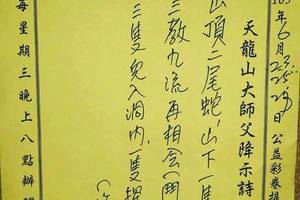 103年6月23.25.29日 公益彩卷提
天龍山大師父降示詩
山頂二尾蛇,山下一隻
三教九流再相会
三隻兒入洞內.一隻
每星期三晚上八點辦